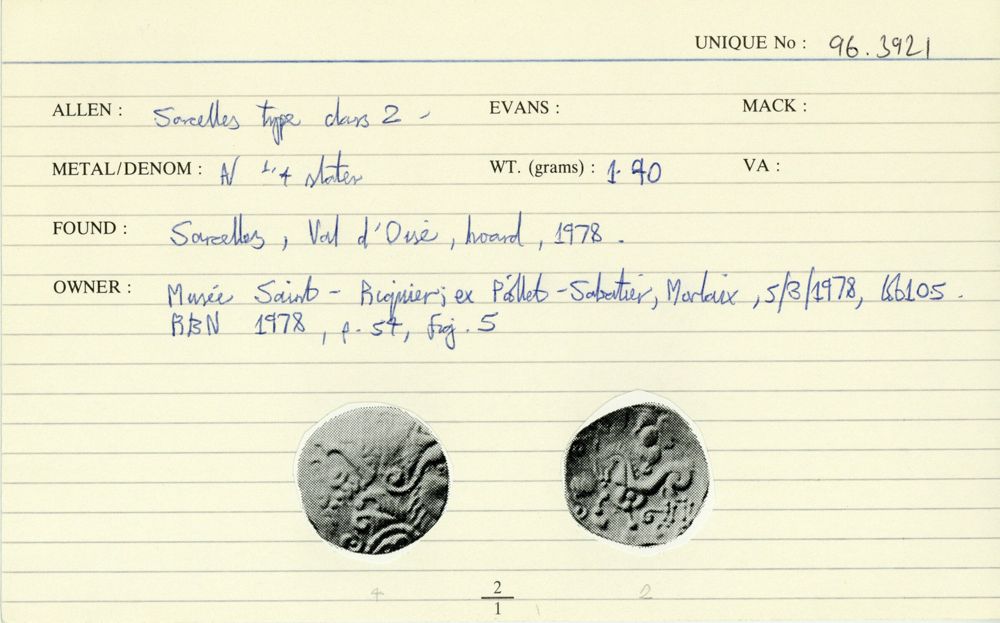 UNIQUE No : 96.3921
ALLEN : Sarcelles type class 2 - EVANS : MACK :
METAL/DENOM : N 1/4 stater WT. (grams) : VA :
FOUND : Sarcelles, Val d'Oise, hoard, 1978.
OWNER : Musée Saint - ex - Sabatier, Morlaix, 5/3/1978,
RBN 1978, p. 54, fig. 5
4 2 2
1